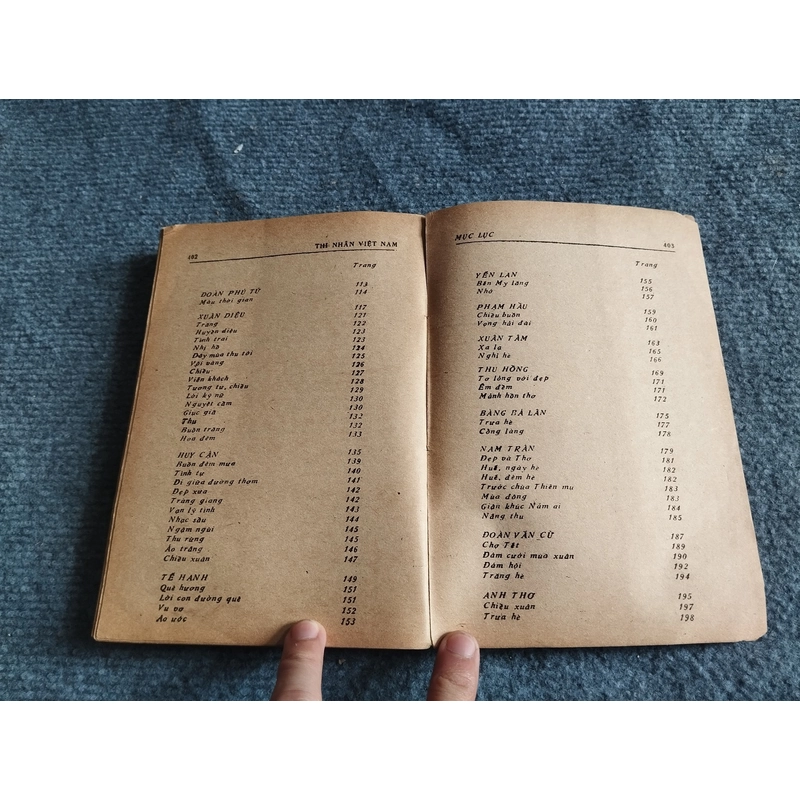 402 THI NHÂN VIỆT NAM
Trang
ĐOÀN PHÚ TỨ 113
Màu thời gian 114
XUÂN DIỆU 117
Trăng 121
Huyền diệu 122
Tình trai 123
Nhị hồ 123
Đây mùa thu tới 124
Vội vàng 125
Chiều 126
Viễn khách 127
Tương tư, chiều 128
Lời kỹ nữ 129
Nguyệt cầm 130
Giục giã 130
Thu 132
Buồn trăng 132
Hoa đêm 133
HUY CẬN 135
Buồn đêm mưa 139
Tình tự 140
Đi giữa đường thơm 141
Đẹp xưa 142
Tràng giang 142
Vạn lý tình 143
Nhạc sầu 144
Ngậm ngùi 145
Thu rừng 145
Áo trắng 146
Chiều xuân 147
TẾ HANH 149
Quê hương 151
Lời con đường quê 151
Vu vơ 152
Ao ước 153
MỤC LỤC 403
Trang
YẾN LAN 155
Bến My lăng 156
Nhớ 157
PHẠM HẦU 159
Chiều buồn 160
Vọng hải đài 161
XUÂN TÂM 163
Xa lạ 165
Nghỉ hè 166
THU HỒNG 169
Tơ lòng với đẹp 171
Êm đềm 171
Mảnh hồn thơ 172
BÀNG BÁ LÂN 175
Trưa hè 177
Cổng làng 178
NAM TRÂN 179
Đẹp và Thơ 181
Huế, ngày hè 182
Huế, đêm hè 182
Trước chùa Thiên mụ 183
Mùa đông 183
Giận khúc Nam ai 184
Nắng thu 185
ĐOÀN VĂN CỪ 187
Chợ Tết 189
Đám cưới mùa xuân 190
Đám hội 192
Trăng hè 194
ANH THƠ 195
Chiều xuân 197
Trưa hè 198